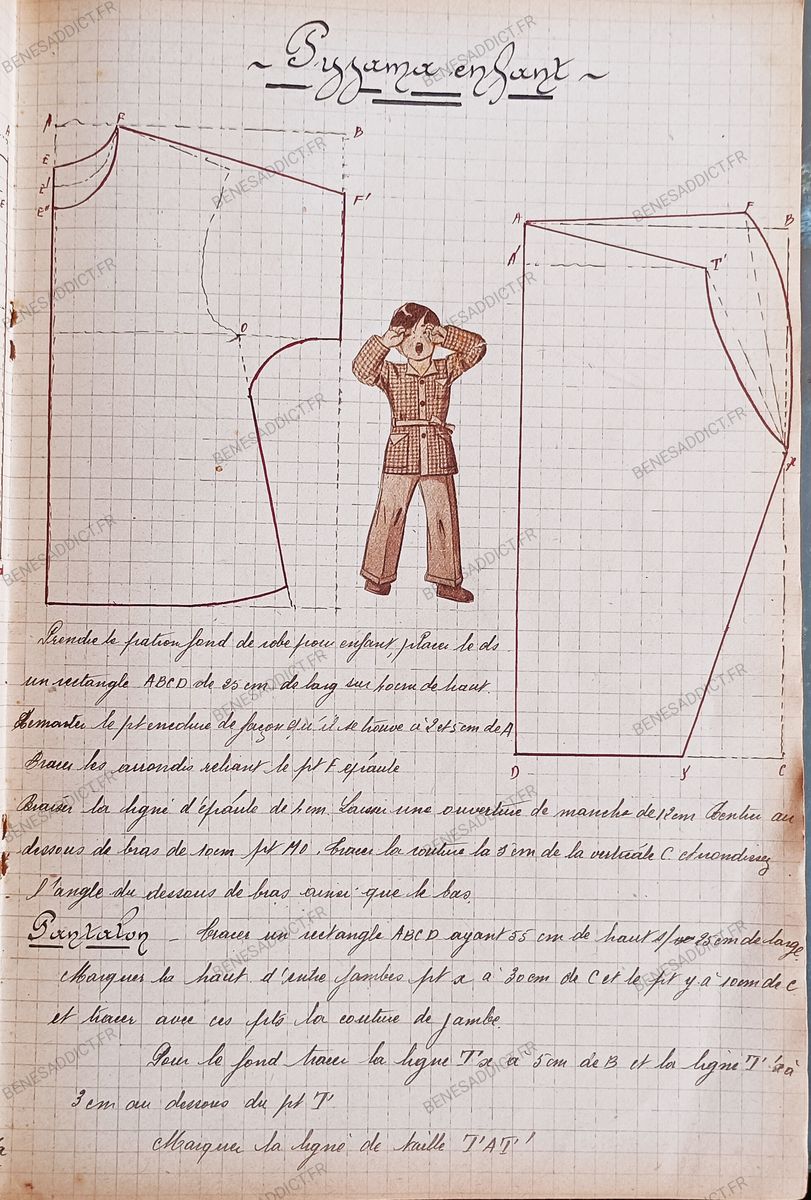 ~ Pyjama enfant ~
A
F
B
E
E'
E"
F'
O
A
F
B
A'
T'
X
D
Y
C
Prendre le patron fond de robe pour enfant, placer le ds
un rectangle ABCD de 25 cm de larg sur 40 cm de haut.
Remonter le pt encolure de façon qu'il se trouve à 2 et 5 cm de A
Tracer les arrondis reliant le pt F épaule
Baisser la ligne d'épaule de 1 cm. Laisser une ouverture de manche de 12 cm Rentrer au
dessous de bras de 10 cm pt MO. Tracer la couture la 3 cm de la verticale C et arrondissez
l'angle du dessous de bras ainsi que le bas.
Pantalon _ Tracer un rectangle ABCD ayant 55 cm de haut s/ 25 cm de large
Marquer la haut d'entre jambes pt x à 30 cm de C et le pt y à 10 cm de C
et tracer avec ces pts la couture de jambe.
Pour le fond tracer la ligne Tx à 5 cm de B et la ligne T'x à
3 cm au dessous du pt T
Marquer la ligne de taille TAT'
BENESADDICT.FR